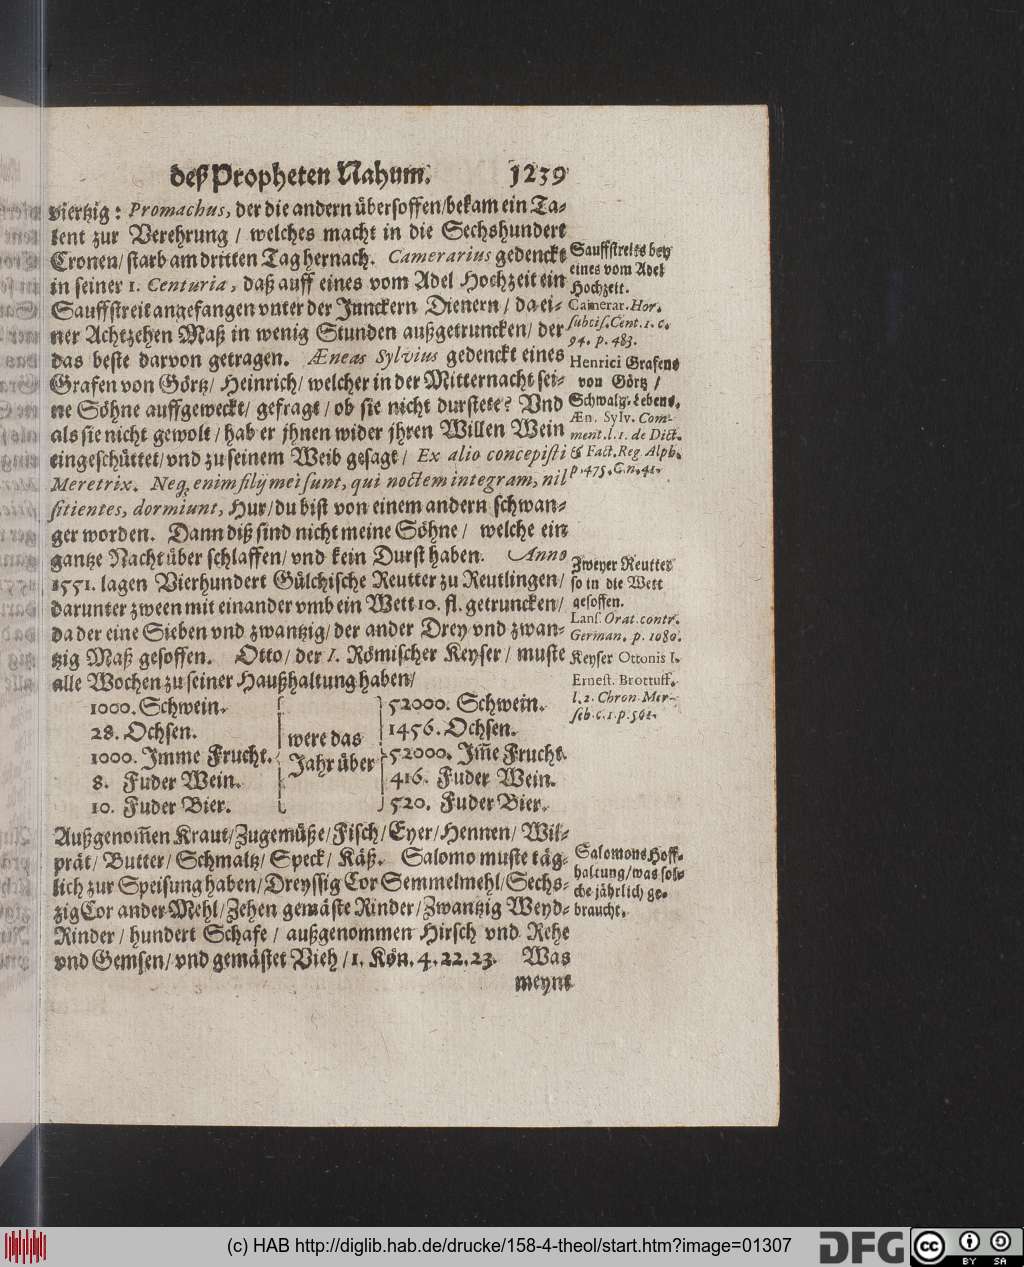 deß Propheten Nahum. 1239
viertzig: Promachus, der die andern übersoffen/bekam ein Ta-
lent zur Verehrung / welches macht in die Sechshundert
Cronen/ starb am dritten Tag hernach. Camerarius gedenckt
in seiner 1. Centuria, daß auff eines vom Adel Hochzeit ein
Sauffstreit angefangen vnter der Junckern Dienern / da ei-
ner Achtzehen Maß in wenig Stunden außgetruncken/ der
das beste darvon getragen. Æneas Sylvius gedenckt eines
Grafen von Görtz/ Heinrich/ welcher in der Mitternacht sei-
ne Söhne auffgeweckt/ gefragt / ob sie nicht durstete? Vnd
als sie nicht gewolt / hab er jhnen wider jhren Willen Wein
eingeschüttet/ vnd zu seinem Weib gesagt / Ex alio concepisti
Meretrix. Neq; enim filij mei sunt, qui noctem integram, nil
sitientes, dormiunt, Hur/ du bist von einem andern schwan-
ger worden. Dann diß sind nicht meine Söhne / welche ein
gantze Nacht über schlaffen/ vnd kein Durst haben. Anno
1551. lagen Vierhundert Gülchische Reutter zu Reutlingen/
darunter zween mit einander vmb ein Wett 10. fl. getruncken/
da der eine Sieben vnd zwantzig/ der ander Drey vnd zwan-
tzig Maß gesoffen. Otto/ der I. Römischer Keyser / muste
alle Wochen zu seiner Haußhaltung haben/
1000. Schwein.
28. Ochsen.
1000. Imme Frucht.
8. Fuder Wein.
10. Fuder Bier.
were das
Jahr über
52000. Schwein.
1456. Ochsen.
52000. Im̃e Frucht.
416. Fuder Wein.
520. Fuder Bier.
Außgenom̃en Kraut/ Zugemüße/ Fisch/ Eyer/ Hennen/ Wil-
prät/ Butter/ Schmaltz/ Speck/ Käß. Salomo muste täg-
lich zur Speisung haben/ Dreyssig Cor Semmelmehl/ Sechs-
zig Cor ander Mehl/ Zehen gemäste Rinder/ Zwantzig Weyd-
Rinder / hundert Schafe / außgenommen Hirsch vnd Rehe
vnd Gemsen/ vnd gemästet Vieh / 1. Kön. 4. 22. 23. Was
meynt
Sauffstreits bey
eines vom Adel
Hochzeit.
Camerar. Hor.
subcis. Cent. 1. c.
94. p. 483.
Henrici Grafens
von Görtz /
Schwalg-Lebens.
Æn. Sylv. Com-
ment. l. 1. de Dict.
& Fact. Reg. Alph.
p. 475. C. n. 41.
Zweyer Reutter
so in die Wett
gesoffen.
Lans. Orat. contr.
German. p. 1080.
Keyser Ottonis I.
Ernest. Brottuff.
l. 2. Chron. Mer-
seb. c. 1. p. 561.
Salomons Hoff-
haltung/ was sol-
che jährlich ge-
braucht.
(c) HAB http://diglib.hab.de/drucke/158-4-theol/start.htm?image=01307
DFG
cc
BY SA